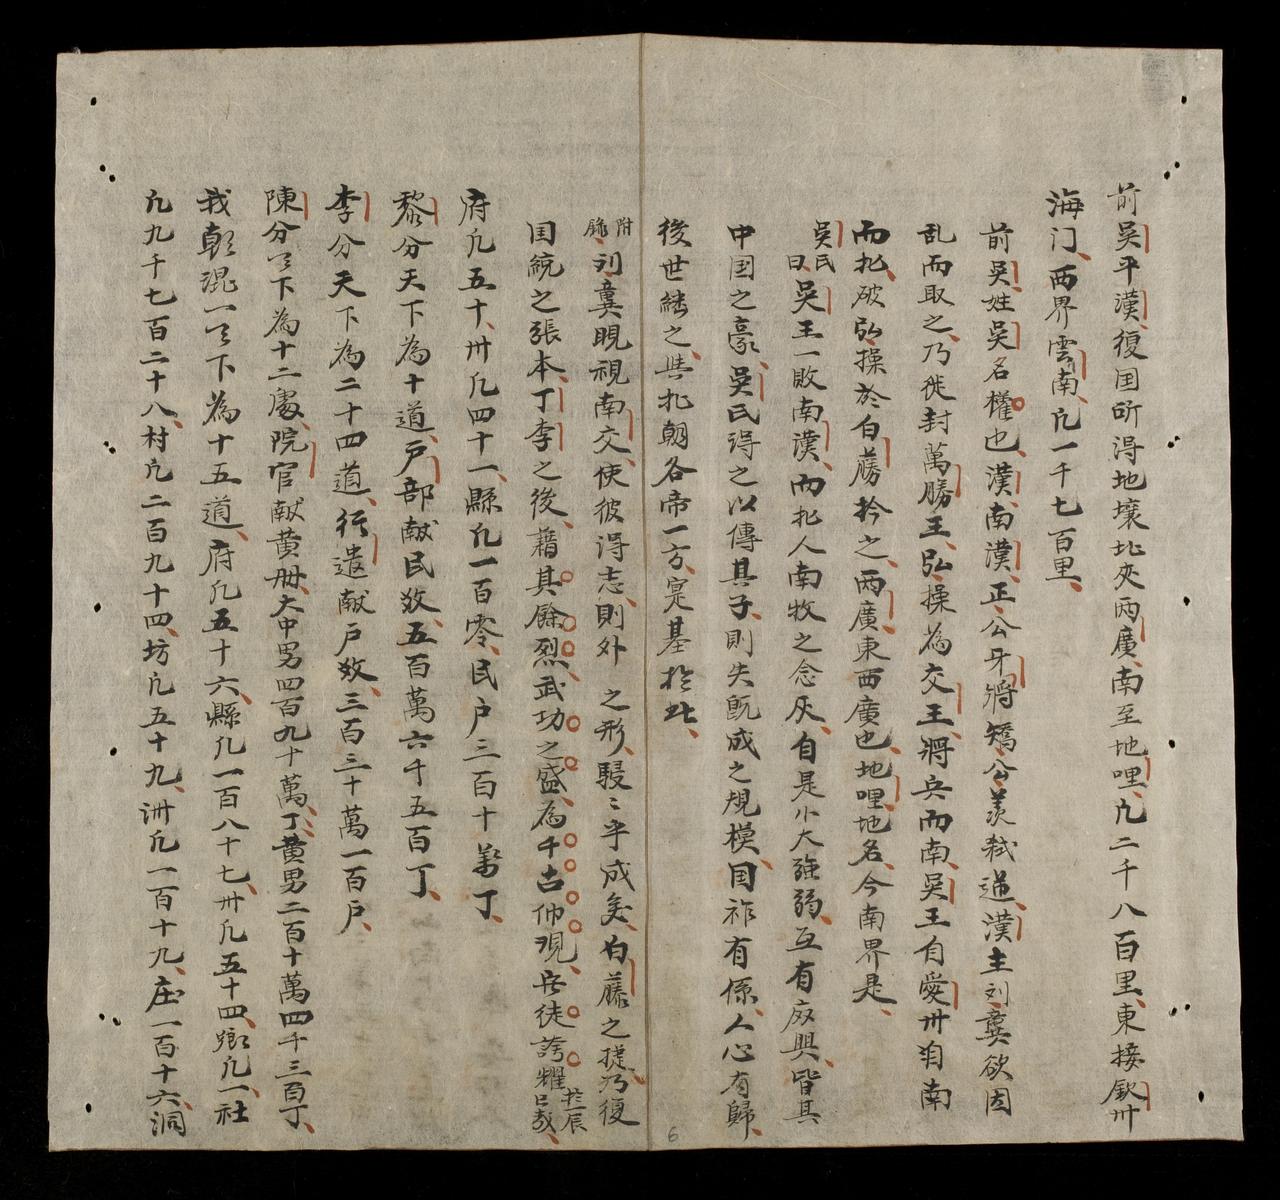 前吳平漢復囯所得地壤北夾両廣南至地哩凢二千八百里東接欽卅
海门西界雲南凢一千七百里
前吳姓吳名權也漢南漢正公牙將矯公羡弑逆漢主刘龑欲因
乱而取之乃徙封萬勝王弘操為交王將兵而南吳王自愛卅南
而北破弘操於白藤擒之両廣東西廣也地哩地名今南界是
吳氏曰吳王一敗南漢而北人南牧之念灰自是小大強弱互有废興皆其
中国之豪吳氏得之以傳其子則失旣成之規模囯祚有係人心有歸
後世継之與北朝各帝一方寔基於此
附錄刘龑睨視南交使彼得志則外之形駸〻乎成矣白藤之捷乃復
囯統之張本丁李之後藉其餘烈武功之盛為千古仰观岂徒誇耀於一辰已哉
府凢五十卅凢四十一縣凢一百零民户三百十萬丁
黎分天下為十道户部献民数五百萬六千五百丁
李分天下為二十四道行遣献户数三百三十萬一百户
陳分天下為十二處院官献黄册大中男四百九十萬丁黄男二百十萬四千三百丁
我朝混一天下為十五道府凢五十六縣凢一百八十七卅凢五十四鄉凢一社
凢九千七百二十八村凢二百九十四坊凢五十九洲凢一百十九庄一百十六洞
6